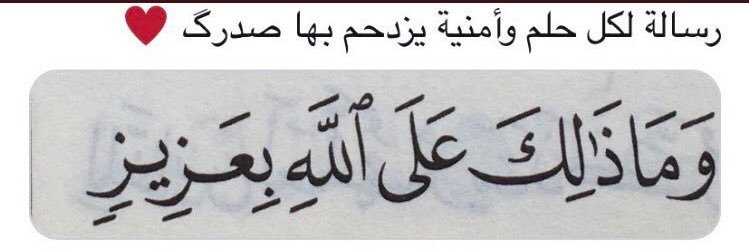 رسالة لكل حلم وأمنية يزدحم بها صدرگ ♥️
وَمَا ذَٰلِكَ عَلَى ٱللَّهِ بِعَزِيزٍ